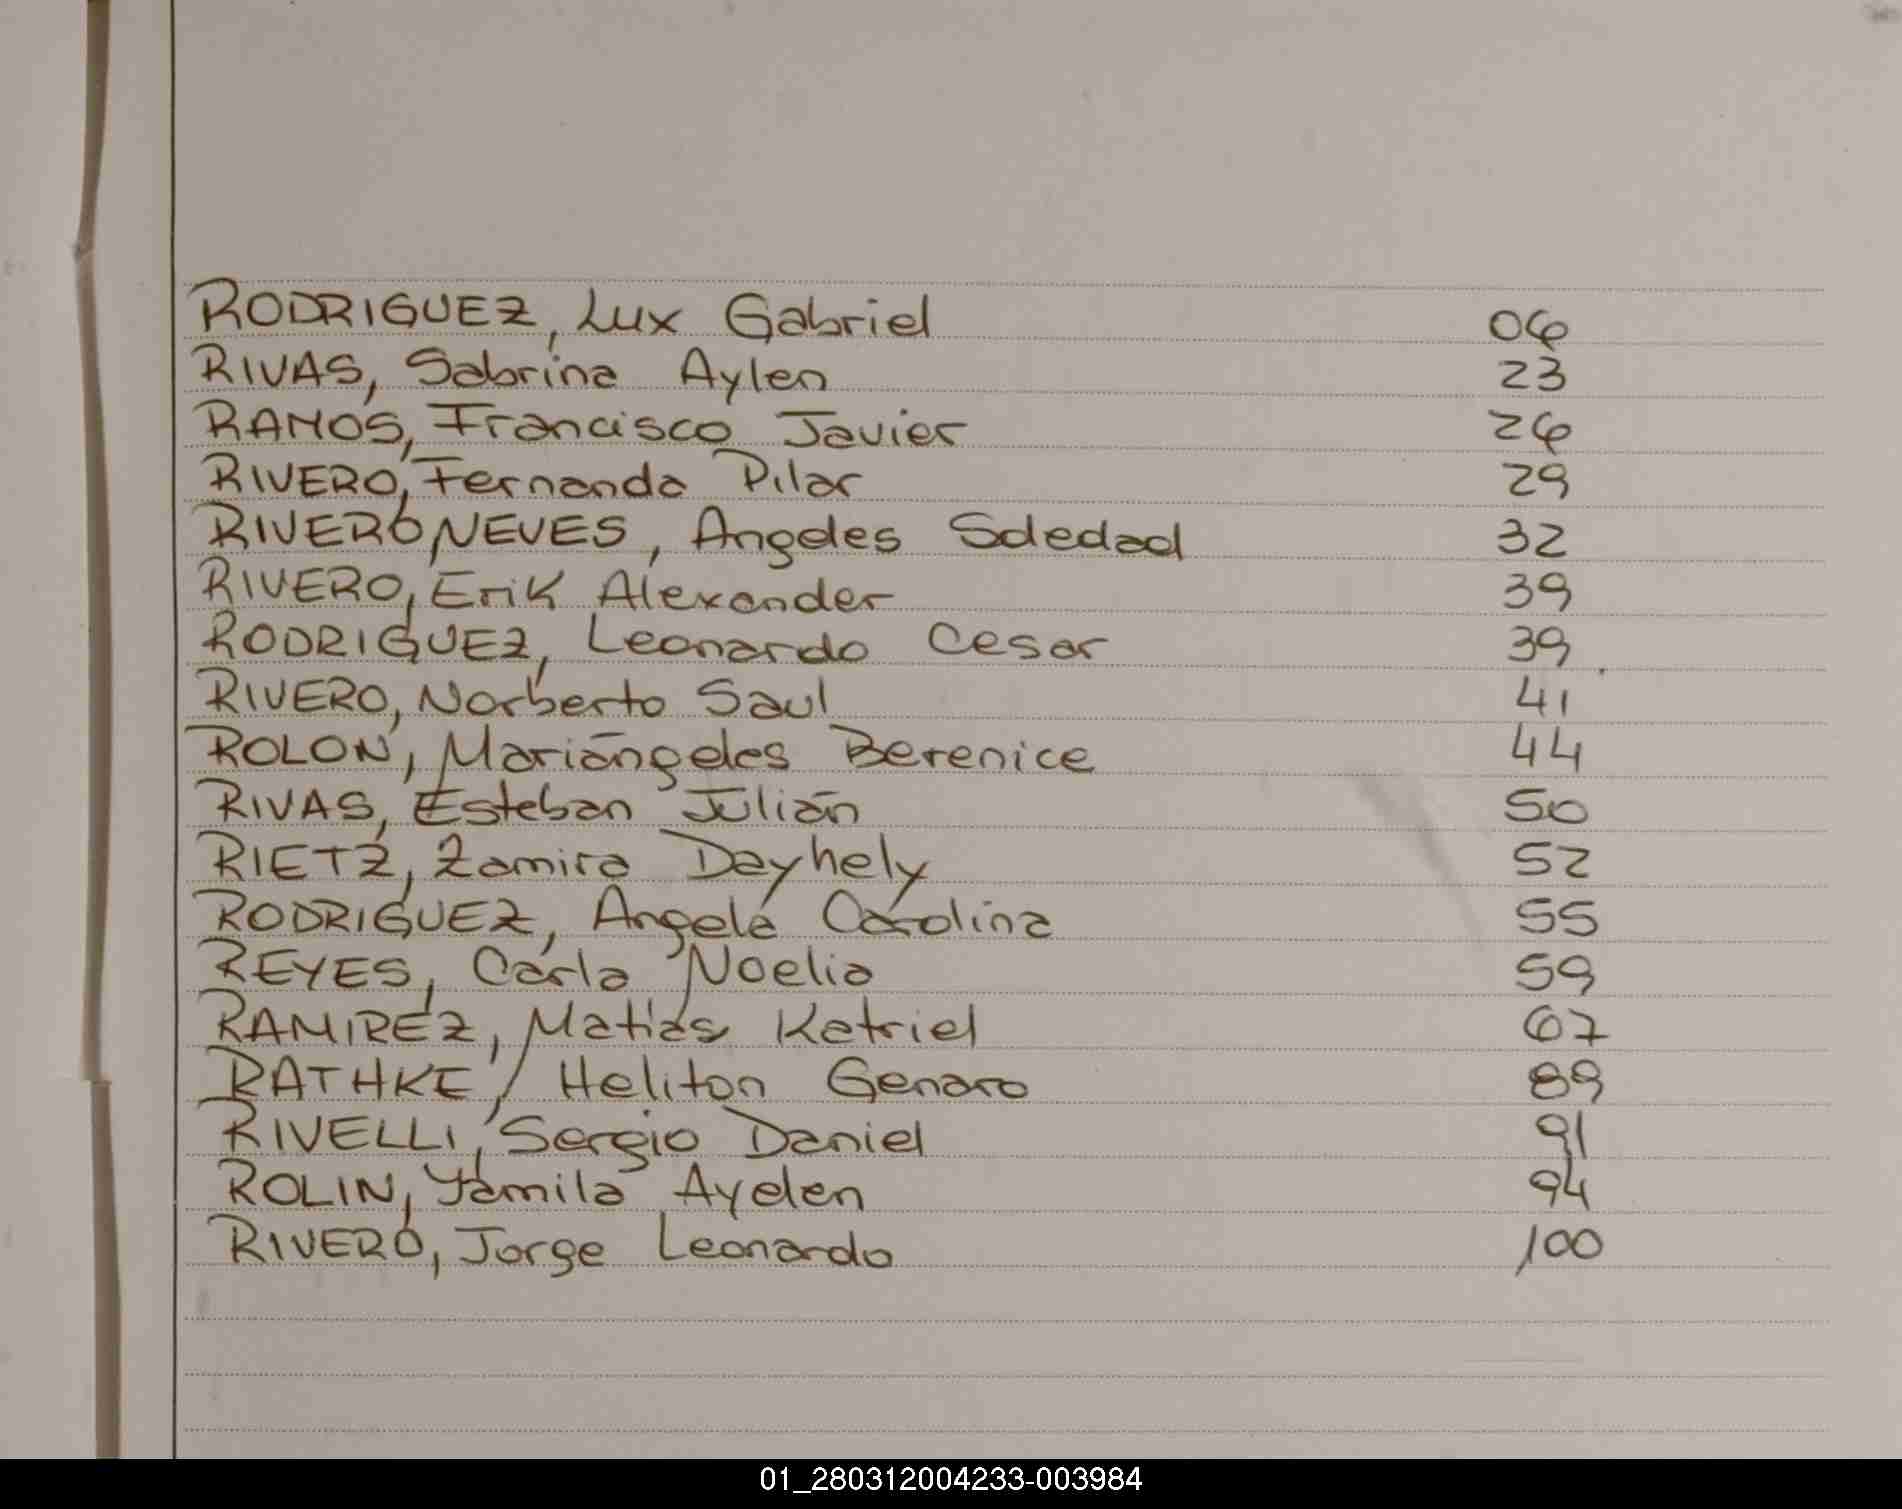 RODRIGUEZ, Lux Gabriel 06
RIVAS, Sabrina Aylen 23
RAMOS, Francisco Javier 26
RIVERO, Fernanda Pilar 29
RIVERO NEVES, Angeles Soledad 32
RIVERO, Erik Alexander 39
RODRIGUEZ, Leonardo Cesar 39
RIVERO, Norberto Saul 41
ROLON, Mariángeles Berenice 44
RIVAS, Esteban Julián 50
RIETZ, Zamira Dayhely 52
RODRIGUEZ, Angela Carolina 55
REYES, Carla Noelia 59
RAMIREZ, Matías Ketriel 67
RATHKE, Heliton Genaro 89
RIVELLI, Sergio Daniel 91
ROLIN, Yamila Ayelen 94
RIVERO, Jorge Leonardo 100
01_280312004233-003984